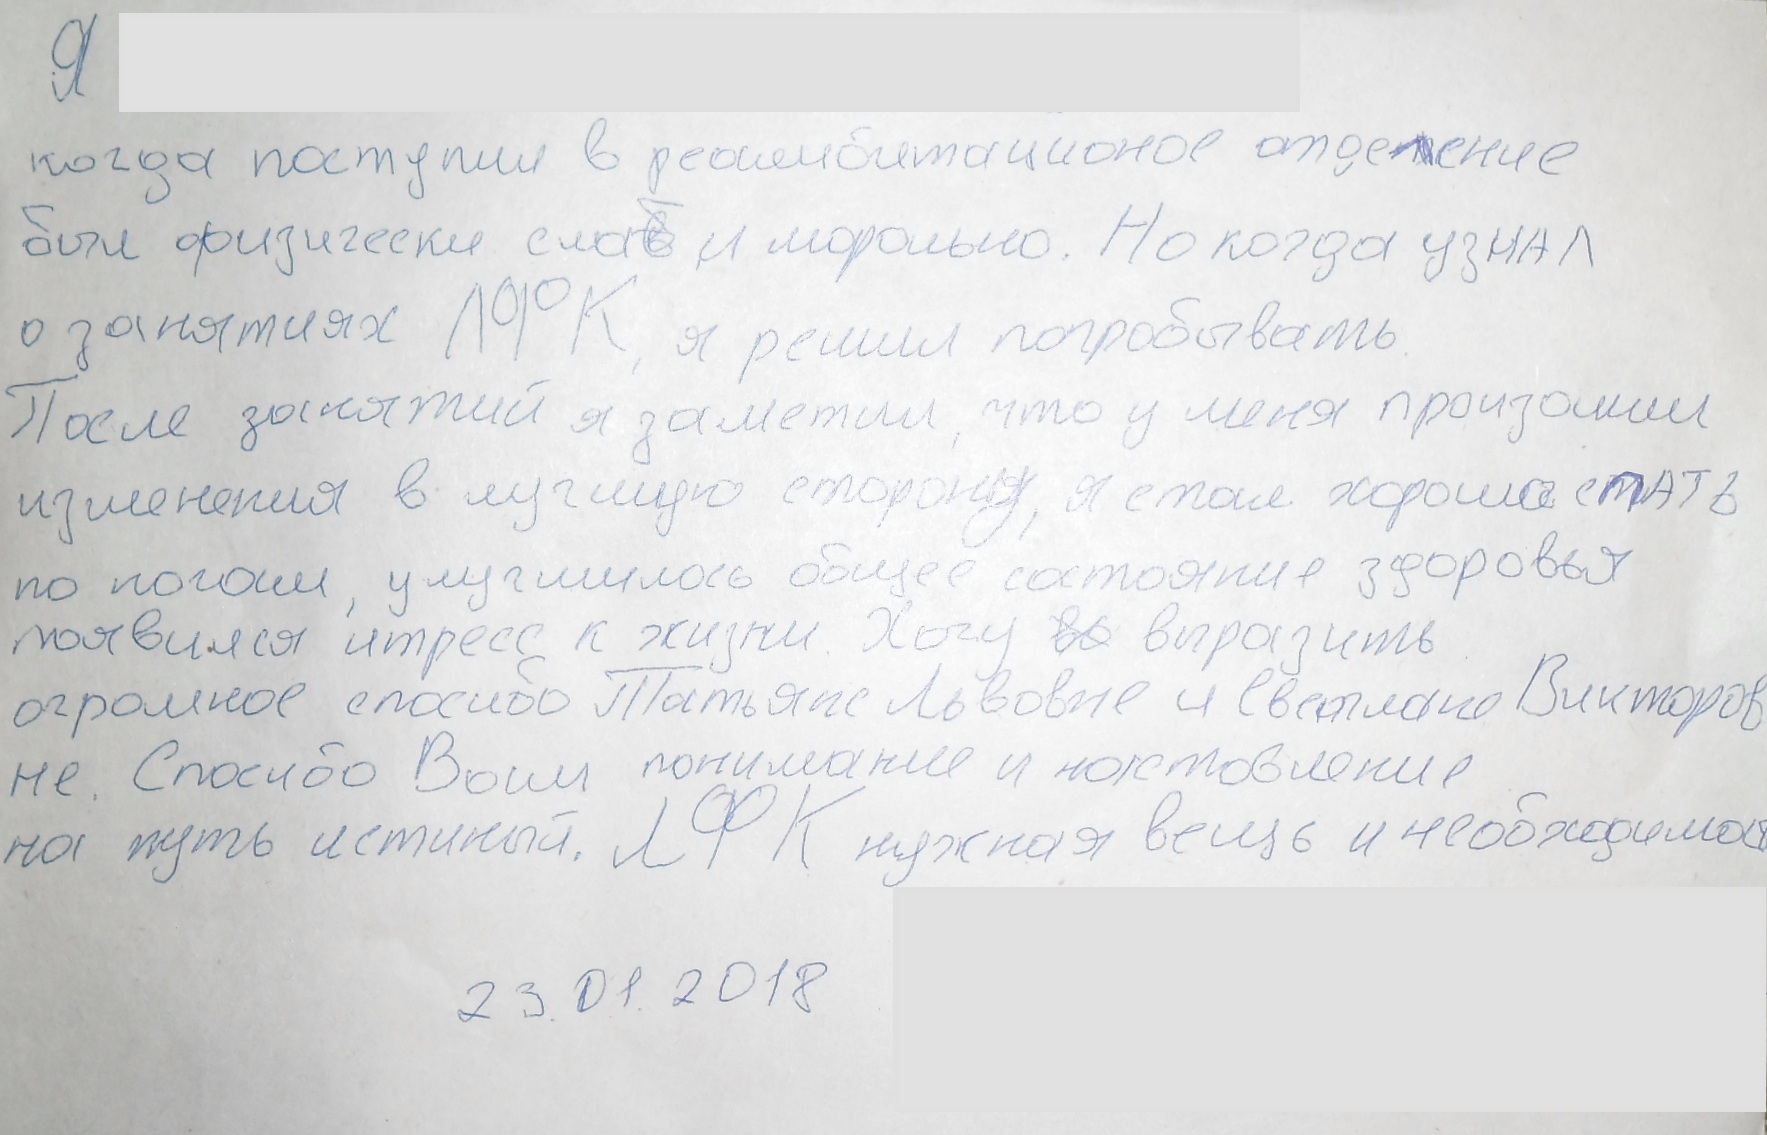 Я
когда поступил в реамбитационое отделение
был физически слаб и морально. Но когда узнАЛ
о занятиях ЛФК, я решил попробывать.
После занятий я заметил, что у меня произошли
изменения в лучшую сторону, я стал хорошо спАТЬ
по ночам, улучшилось общее состояние здоровья
появился итресс к жизни. Хочу выразить
огромное спасибо Татьяне Львовне и Светлане Викторов
не. Спасибо Вам понимание и наставление
на путь истиный. ЛФК нужная вещь и необходимая
23.01.2018